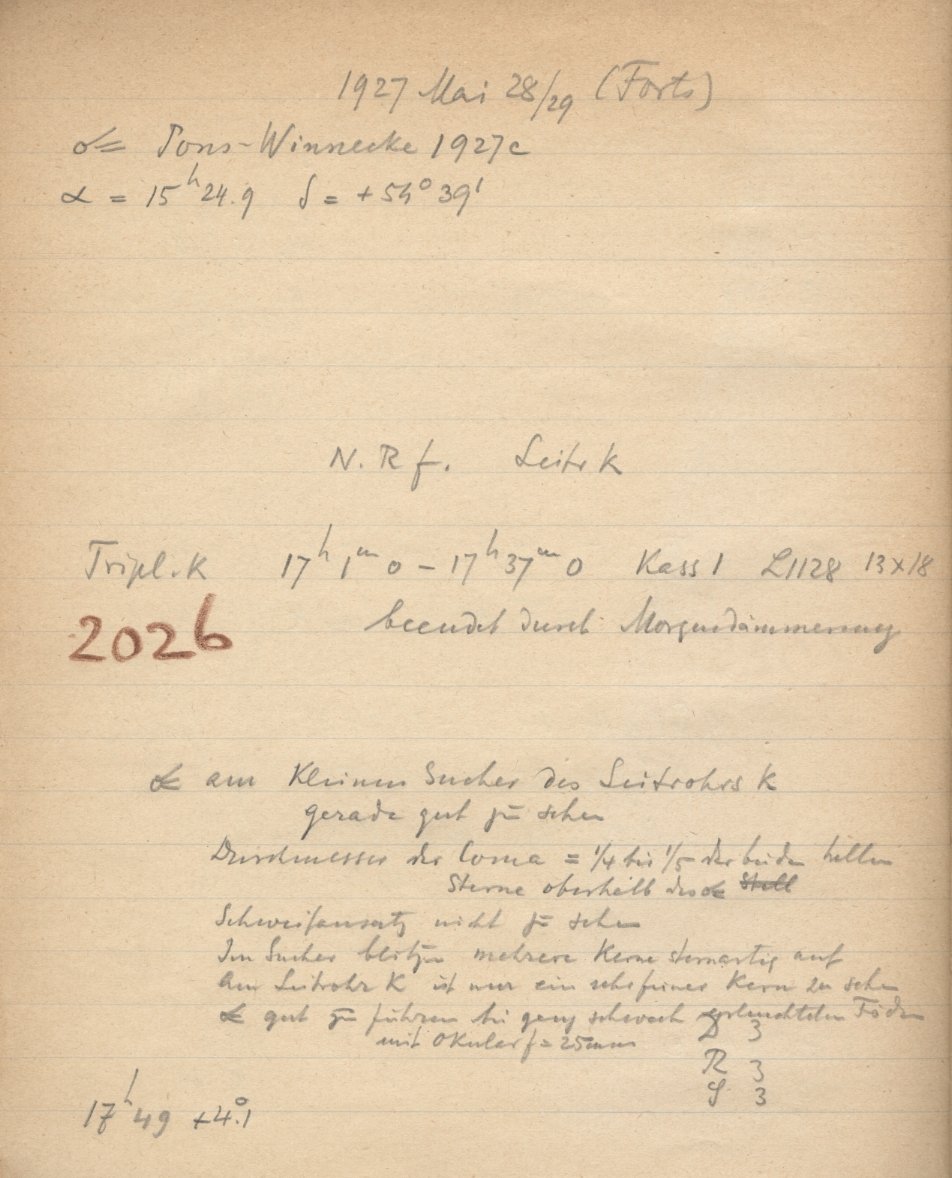 1927 Mai 28/29 (Forts)
☄ Pons-Winnecke 1927c
α = 15ʰ24.9 δ = +54° 39'
N. R f. Leitr k
Tripl. k 17ʰ 1ᵐ 0 – 17ʰ 37ᵐ 0 Kass 1 L1128 13×18
2026 beendet durch Morgendämmerung
☄ am Kleinen Sucher des Leitrohrs k
gerade gut zu sehen
Durchmesser der Coma = 1/4 bis 1/5 der beiden hellen
Sterne oberhalb des ☄
Schweifansatz nicht zu sehen
Im Sucher blitzen mehrere Kerne sternartig auf
Am Leitrohr K ist nur ein sehr feiner Kern zu sehen
☄ gut zu führen bei ganz schwach erleuchteten Fäden
mit Okular f = 25mm
D 3
R 3
S 3
17ʰ49 +4°.1